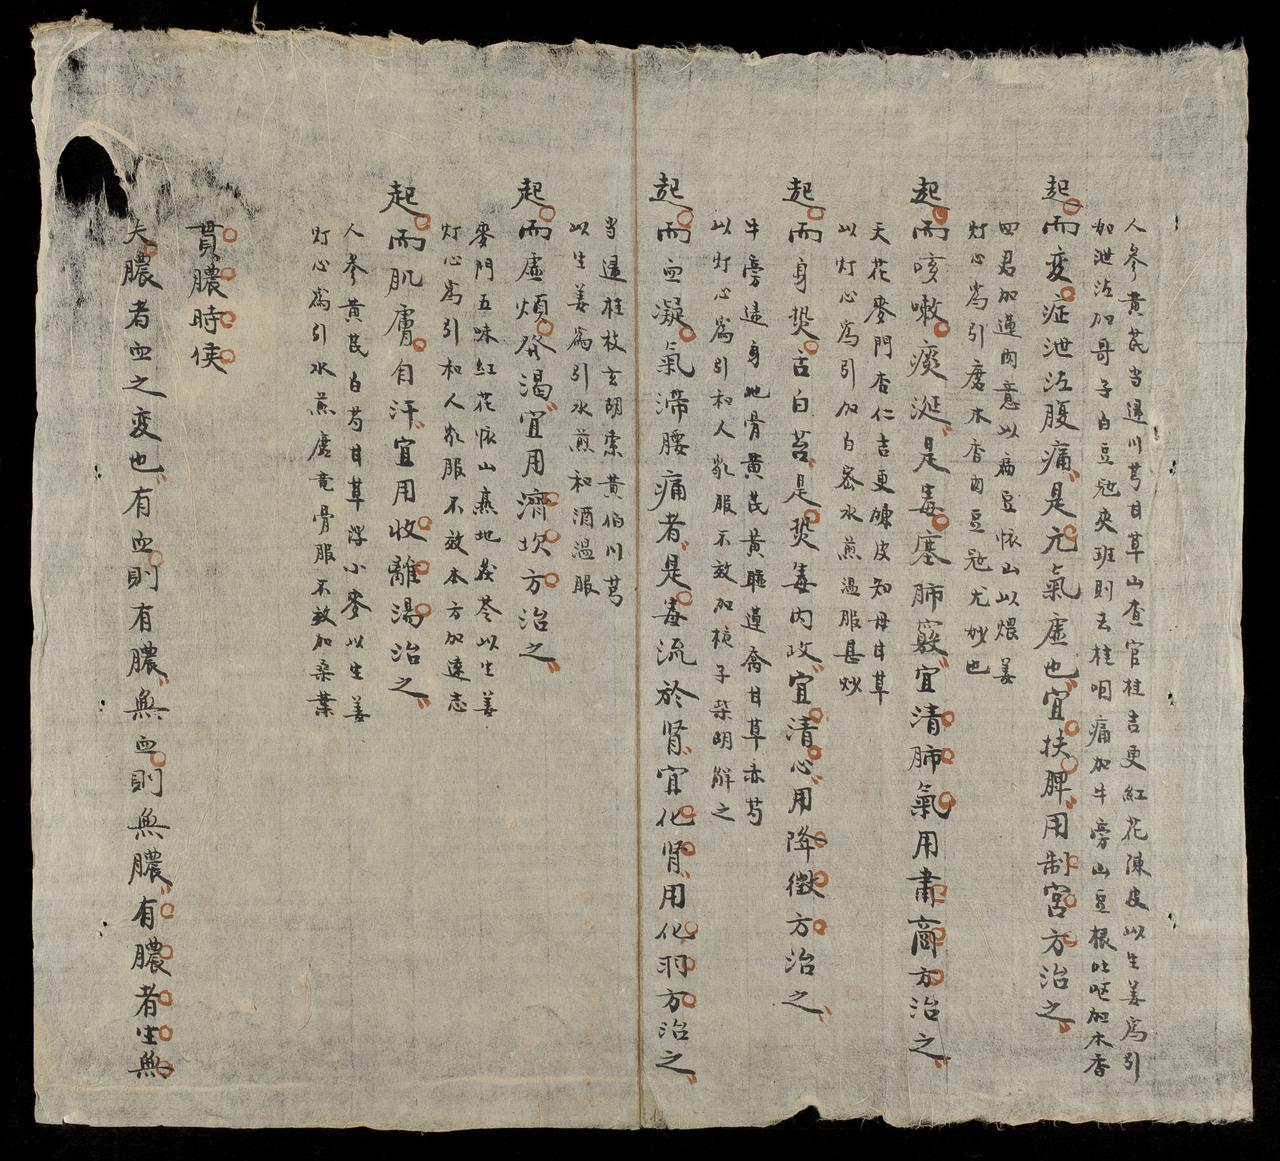 人參黄芪当逺川芎甘草山查官桂吉更紅花陳皮以生姜為引
如泄泻加哥子白豆冠夾班則去桂咽痛加牛旁山豆根吐呕加木香
起而变症泄泻腹痛是元氣虚也宜扶脾用制宮方治之
四君加蓮肉意以扁豆怀山以煨姜
灯心為引磨木香肉豆冠尤妙也
起而咳嗽痰涎是毒塞肺竅宜清肺氣用肅商方治之
天花麥門杏仁吉更陳皮知母甘草
以灯心為引加白密水煎温服甚炒
起而身热舌白苔是热毒内攻宜清心用降徵方治之
牛旁逺身地骨黄芪黄連蓮喬甘草赤芍
以灯心為引和人乳服不效加梔子柴胡解之
起而血凝氣滞腰痛者是毒流於肾宜化肾用化羽方治之
当逺桂枝玄胡索黄伯川芎
以生姜為引水煎和酒温服
起而虚煩發渴宜用濟坎方治之
麥門五味紅花怀山熟地茯苓以生姜
灯心為引和人乳服不效本方加逺志
起而肌膚自汗宜用收離湯治之
人參黄芪白芍甘草浮小麥以生姜
灯心為引水煎磨竜骨服不效加桑葉
貫膿時侯
夫膿者血之变也有血則有膿無血則無膿有膿者生無